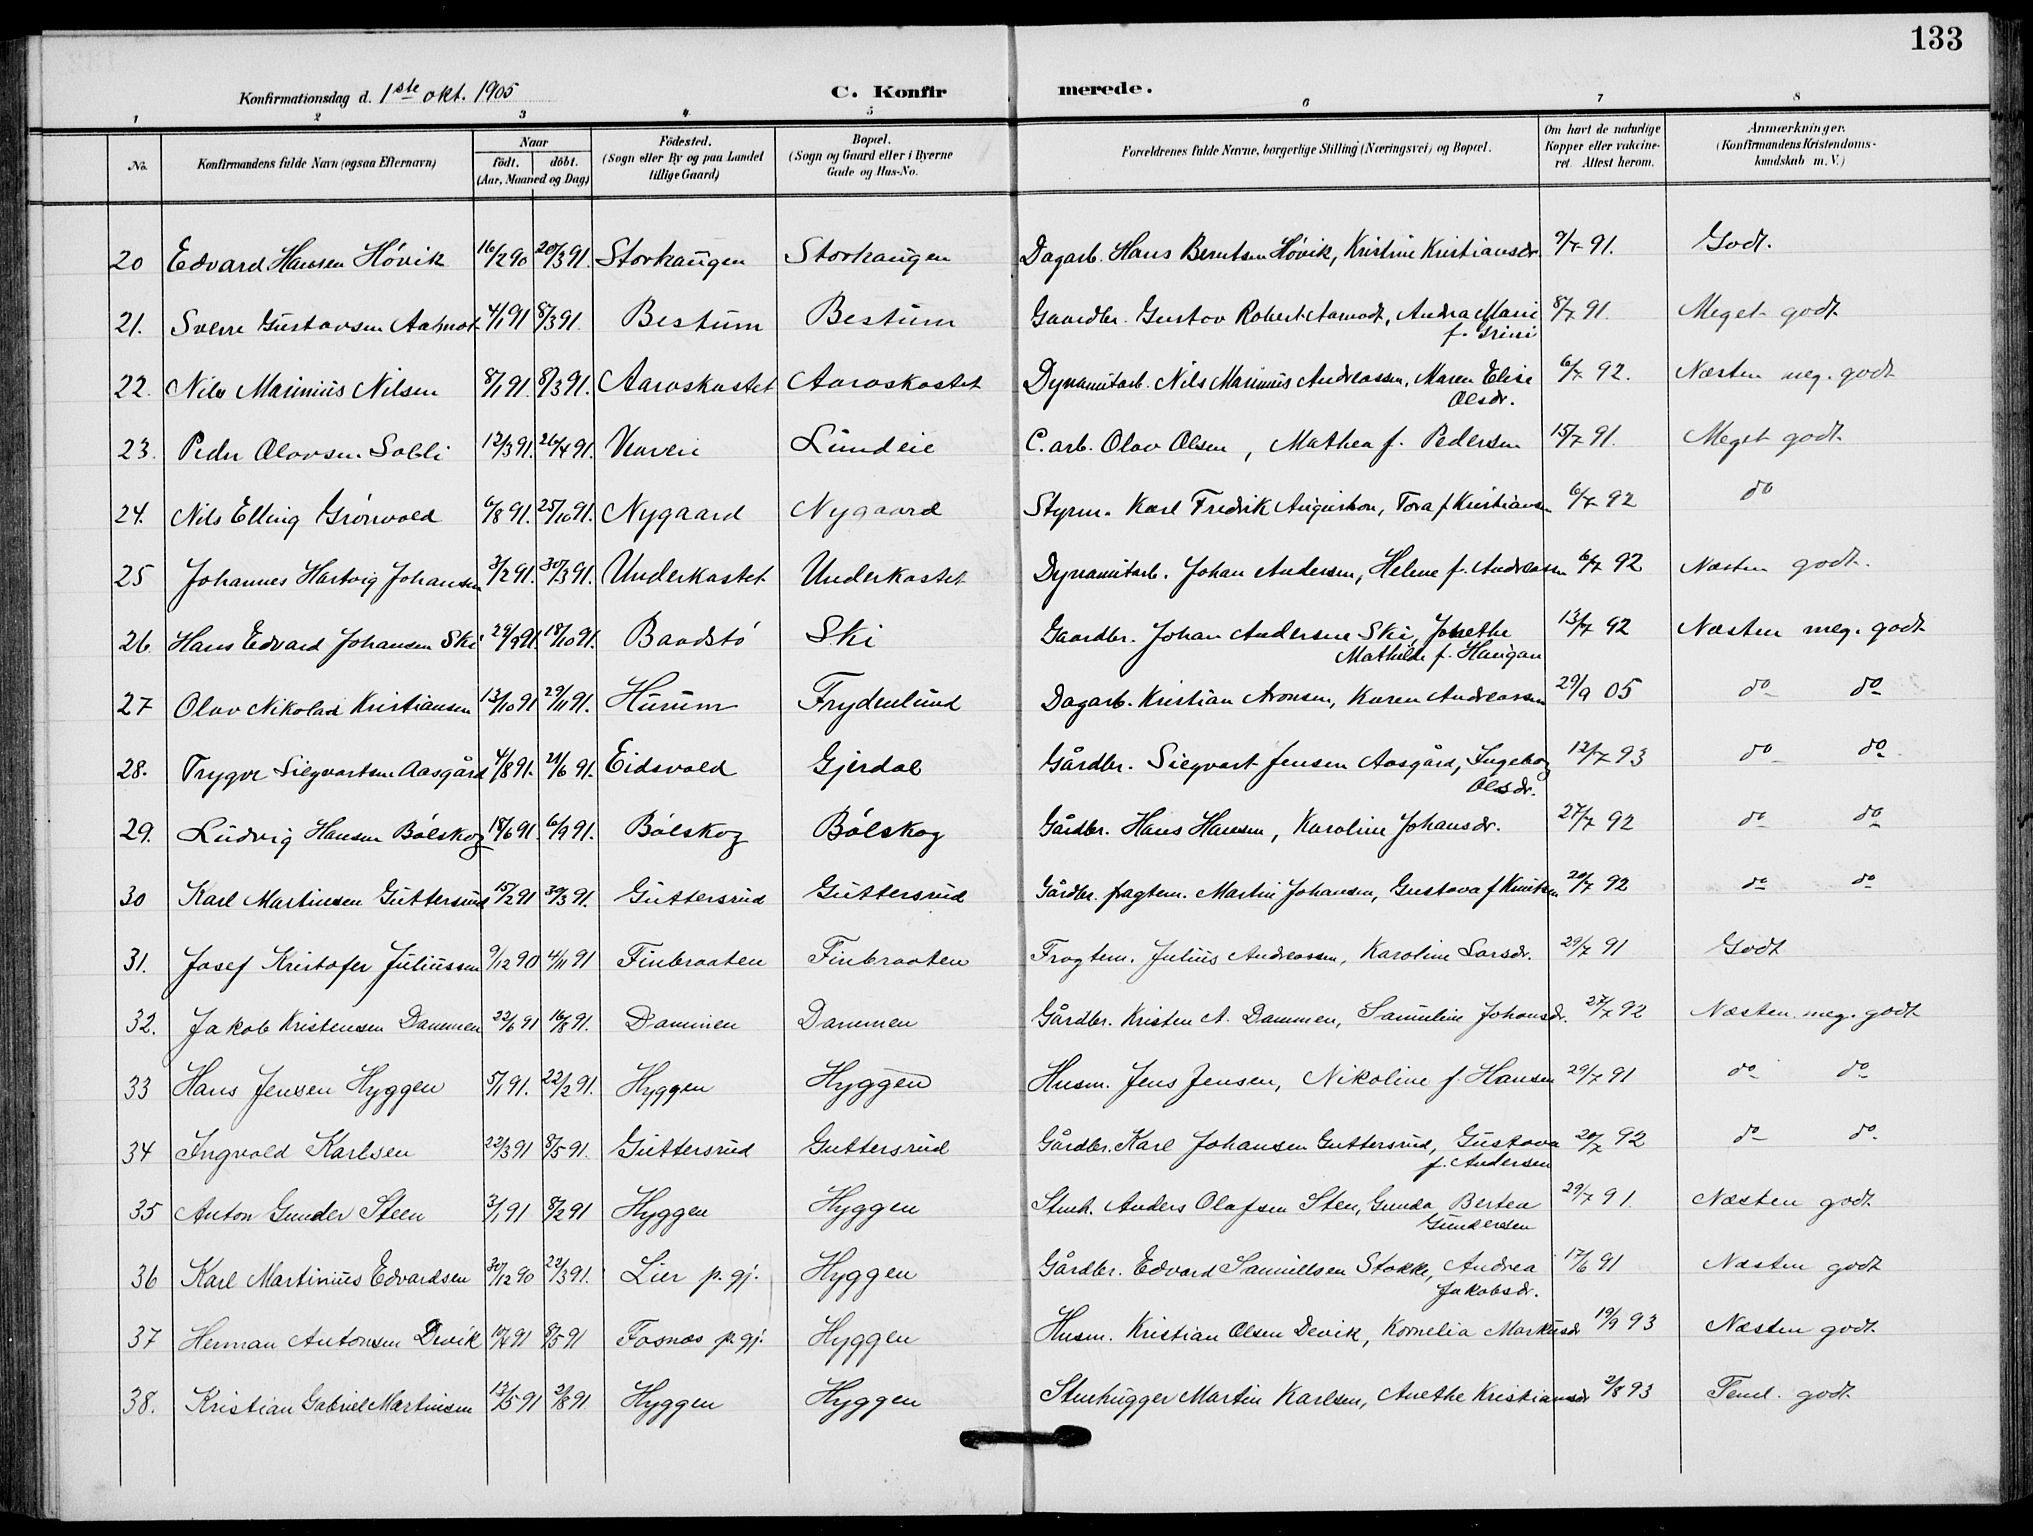 133
Konfirmationsdag d. 1ste okt. 1905 C. Konfirmerede.
1 2 3 4 5 6 7 8
No. Konfirmandens fulde Navn (ogsaa Efternavn) Naar födt. döbt. (Aar, Maaned og Dag) Födested. (Sogn eller By og paa Landet tillige Gaard) Bopæl. (Sogn og Gaard eller i Byerne Gade og Hus-No. Forældrenes fulde Navne, borgerlige Stilling (Næringsvei) og Bopæl. Om havt de naturlige Kopper eller vakcineret. Attest herom. Anmærkninger. (Konfirmandens Kristendomskundskab m. V.)
20 Edvard Hansen Hóvik 16/2 90 20/3 91. Storhaugen Storhaugen Dagarb. Hans Berntsen Hóvik, Kristine Kristiansdr. 9/7 91. Godt.
21. Sverre Gustavsen Aamot 4/1 91 8/3 91. Bestum Bestum Gaardbr. Gustav Robert Aamodt, Andra Marie 8/7 91. Meget godt
f. Grini
22. Nils Marinius Nilsen 8/1 91. 8/3 91. Aaroskastet Aaroskastet Dynamitarb. Nils Marinius Andreassen, Maren Elise 6/7 92. Næsten meg. godt
Olsdr.
23. Peder Olavsen Solli 12/3 91. 26/4 91. Lundeie C. arb. Olav Olsen, Mathea f. Pedersen 15/7 91. Meget godt.
24. Nils Elling Grónvold 6/8 91. 25/10 91. Nygaard Nygaard Styrm. Karl Fredrik Augustson, Tora f Kristiansen 6/7 92 do
25 Johannes Hartvig Johansen 3/2 91. 30/3 91. Underkastet Underkastet Dynamitarb. Johan Andersen, Helene f. Andreassen 6/7 92 Næsten godt.
26. Hans Edvard Johansen Ski 24/9 91. 18/10 91. Baadstó Ski Gaardbr. Johan Andersen Ski, Josethe 13/7 92 Næsten meg. godt
Mathilde f. Haugan
27 Olav Nikolai Kristiansen 13/10 91 29/11 91. Hurum Frydenlund Dagarb. Kristian Aronsen, Karen Andreassen 29/9 05 do do
28. Trygve Siegvartsen Aasgård 4/8 91. 21/6 91. Eidsvold Gjerdal Gårdbr. Siegvart Jensen Aasgård, Ingeborg 12/7 93 do do
Olsdr.
29. Ludvig Hansen Bólskog 18/6 91. 6/9 91. Bólskog Bólskog Gårdbr. Hans Hansen, Karoline Johansdr. 27/7 92 do do
30 Karl Martinsen Guttersrud 15/2 91 30/3 91. Guttersrud Guttersrud Gårdbr. fragtem. Martin Johansen, Gustava f Knutsen 20/7 92 do do
31. Josef Kristofer Juliussen 9/12 90 4/11 91 Finbraaten Finbraaten Fragtem. Julius Andreassen, Karoline Larsdr. 29/7 91 Godt
32. Jakob Kristensen Dammen 22/6 91 16/8 91. Dammen Dammen Gårdbr. Kristen A. Dammen, Samuline Johansdr. 27/7 92 Næsten meg. godt
33 Hans Jensen Hyggen 5/1 91. 22/2 91. Hyggen Hyggen Husm. Jens Jensen, Nikoline f. Hansen 29/7 91 do do
34 Ingvald Karlsen 22/3 91 8/5 91. Guttersrud Guttersrud Gårdbr. Karl Johansen Guttersrud, Gustava 20/7 92 do do.
f. Andersen
35 Anton Gunder Steen 3/1 91 8/2 91 Hyggen Hyggen Stenh. Anders Olafsen Sten, Gunda Bertea 29/7 91. Næsten godt
Gundersen
36 Karl Martinius Edvardsen 30/12 90 22/3 91. Lier p. gj. Hyggen Gårdbr. Edvard Samuelsen Stokke, Andrea 17/6 91 Næsten godt
Jakobsdr.
37 Herman Antonsen Devik 10/4 91 8/5 91 Fosnæs p. gj. Hyggen Husm. Kristian Olsen Devik, Kornelia Markusdr 19/9 93 Næsten godt
38. Kristian Gabriel Martinsen 13/5 91 2/8 91. Hyggen Hyggen Stenhugger Martin Karlsen, Anethe Kristiansdr 2/8 93 Teml. godt